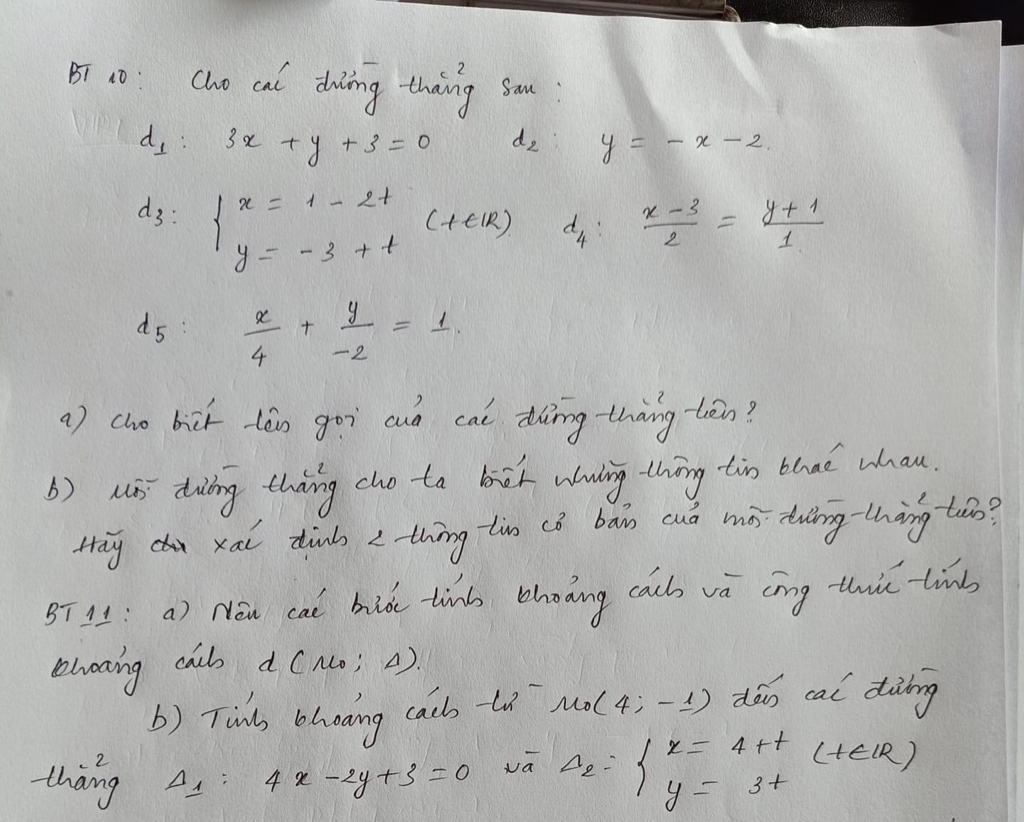 BT 10: Cho các đường thẳng sau:
d1: 3x + y + 3 = 0 d2: y = -x - 2.
d3: { x = 1 - 2t
y = -3 + t (t∈R) d4: (x-3)/2 = (y+1)/1
d5: x/4 + y/-2 = 1.
a) Cho biết tên gọi của các đường thẳng trên?
b) Mỗi đường thẳng cho ta biết những thông tin khác nhau.
Hãy xác định 2 thông tin cơ bản của mỗi đường thẳng trên?
BT 11: a) Nêu các bước tính khoảng cách và công thức tính
khoảng cách d(M0; Δ).
b) Tính khoảng cách từ M0(4; -1) đến các đường
thẳng Δ1: 4x - 2y + 3 = 0 và Δ2: { x = 4 + t (t∈R)
y = 3t